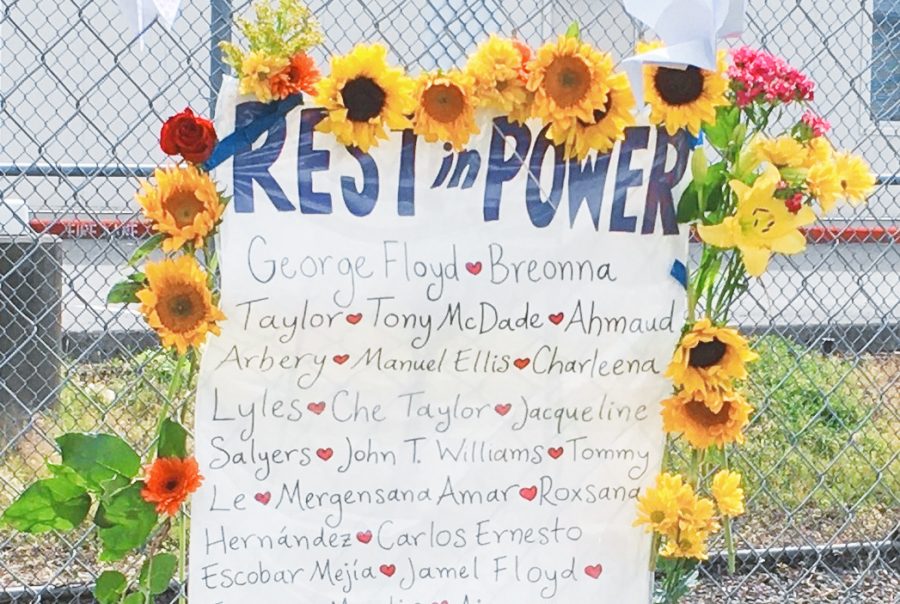 REST in POWER
George Floyd ♥ Breonna
Taylor ♥ Tony McDade ♥ Ahmaud
Arbery ♥ Manuel Ellis ♥ Charleena
Lyles ♥ Che Taylor ♥ Jacqueline
Salyers ♥ John T. Williams ♥ Tommy
Le ♥ Mergensana Amar ♥ Roxsana
Hernández ♥ Carlos Ernesto
Escobar Mejía ♥ Jamel Floyd ♥